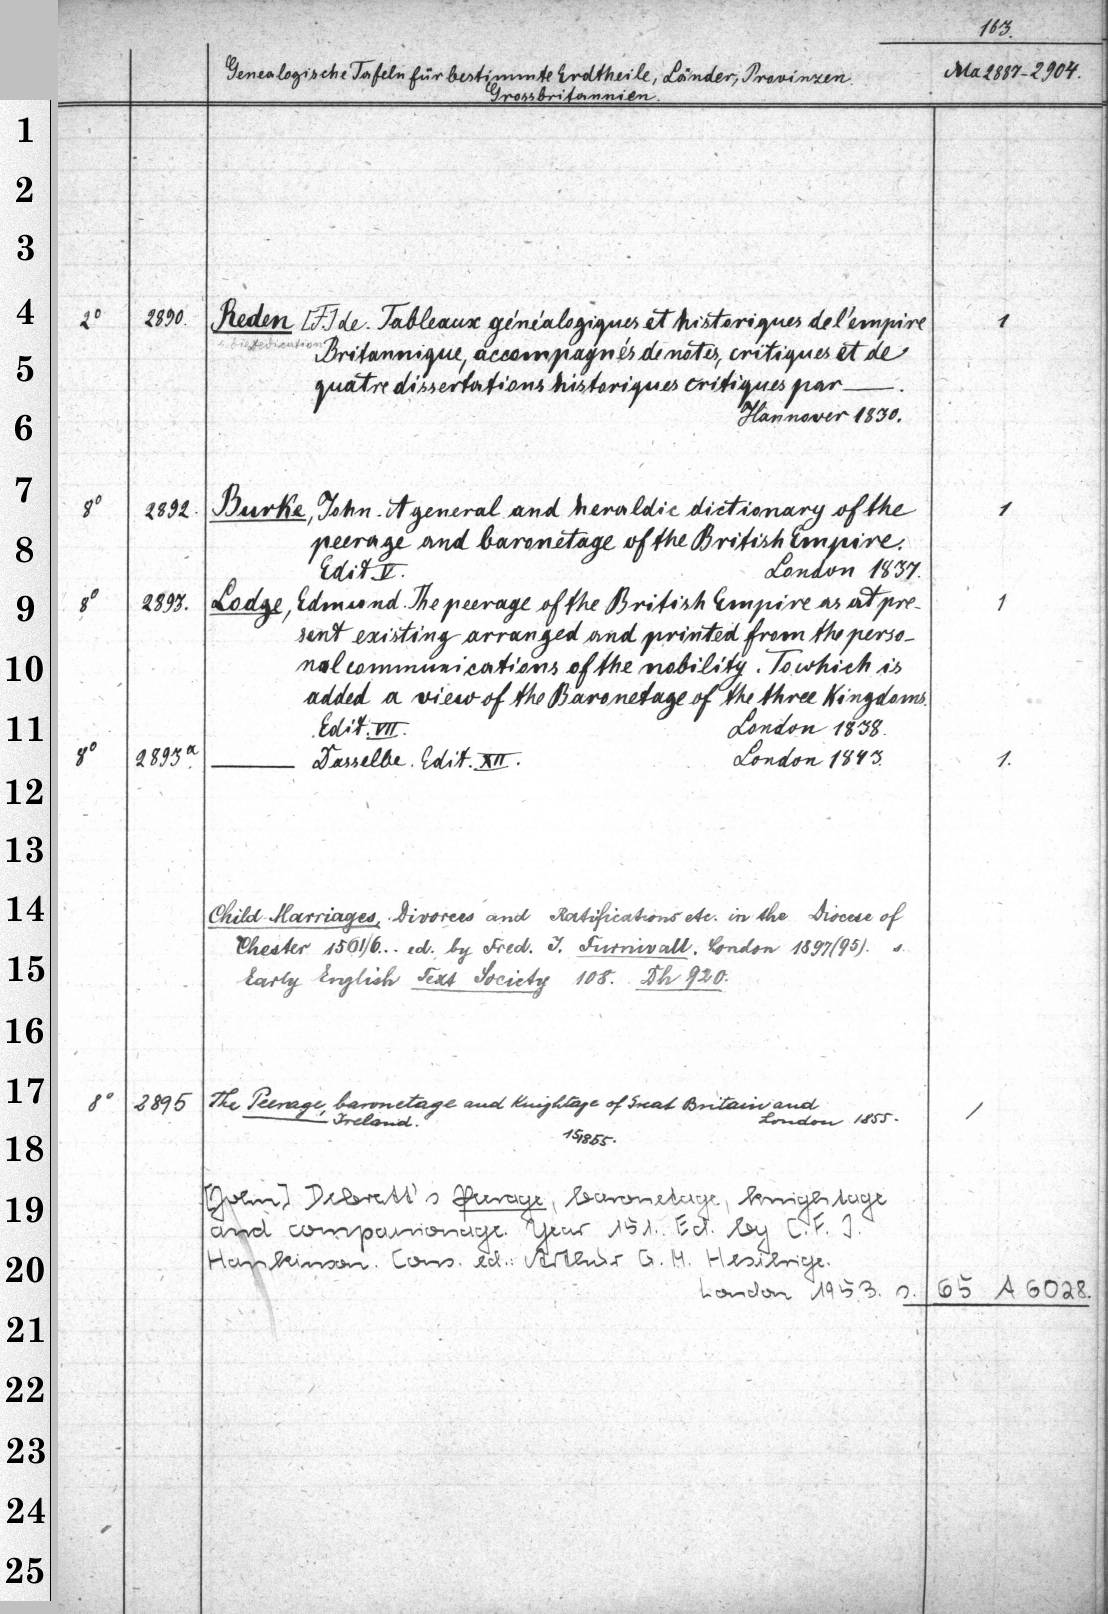 163.
Genealogische Tafeln für bestimmte Erdtheile, Länder, Provinzen. Ma 2887-2904.
Grossbritannien.
1
2
3
4
2° 2890. Reden [F.] de. Tableaux généalogiques et historiques de l'empire 1
s. bie dedication
Britannique, accompagnés de notes, critiques et de
5
quatre dissertations historiques critiques par ——.
Hannover 1830.
6
7
8° 2892. Burke, John. A general and heraldic dictionary of the 1
peerage and baronetage of the British Empire.
8
Edit V. London 1837.
9
8° 2893. Lodge, Edmund. The peerage of the British Empire as at pre- 1
sent existing arranged and printed from the perso-
10
nal communications of the nobility. To which is
added a view of the Baronetage of the three Kingdoms.
11
Edit. VII. London 1838.
8° 2893a. —— Dasselbe. Edit. XII. London 1843. 1.
12
13
14
Child Marriages, Divorces and Ratifications etc. in the Diocese of
Chester 1561/6.. ed. by Fred. J. Furnivall. London 1897(95). s.
15
Early English Text Society 108. Dh 920.
16
17
8° 2895 The Peerage, baronetage and Knightage of Great Britain and 1
Ireland. London 1855.
15,1855.
18
19
[John] Debrett's Peerage, baronetage, knightage
and companionage. Year 151. Ed. by C. F. J.
20
Hankinson. Cons. ed.: Arthur G. M. Hesilrige.
London 1953. s. 65 A 6028.
21
22
23
24
25